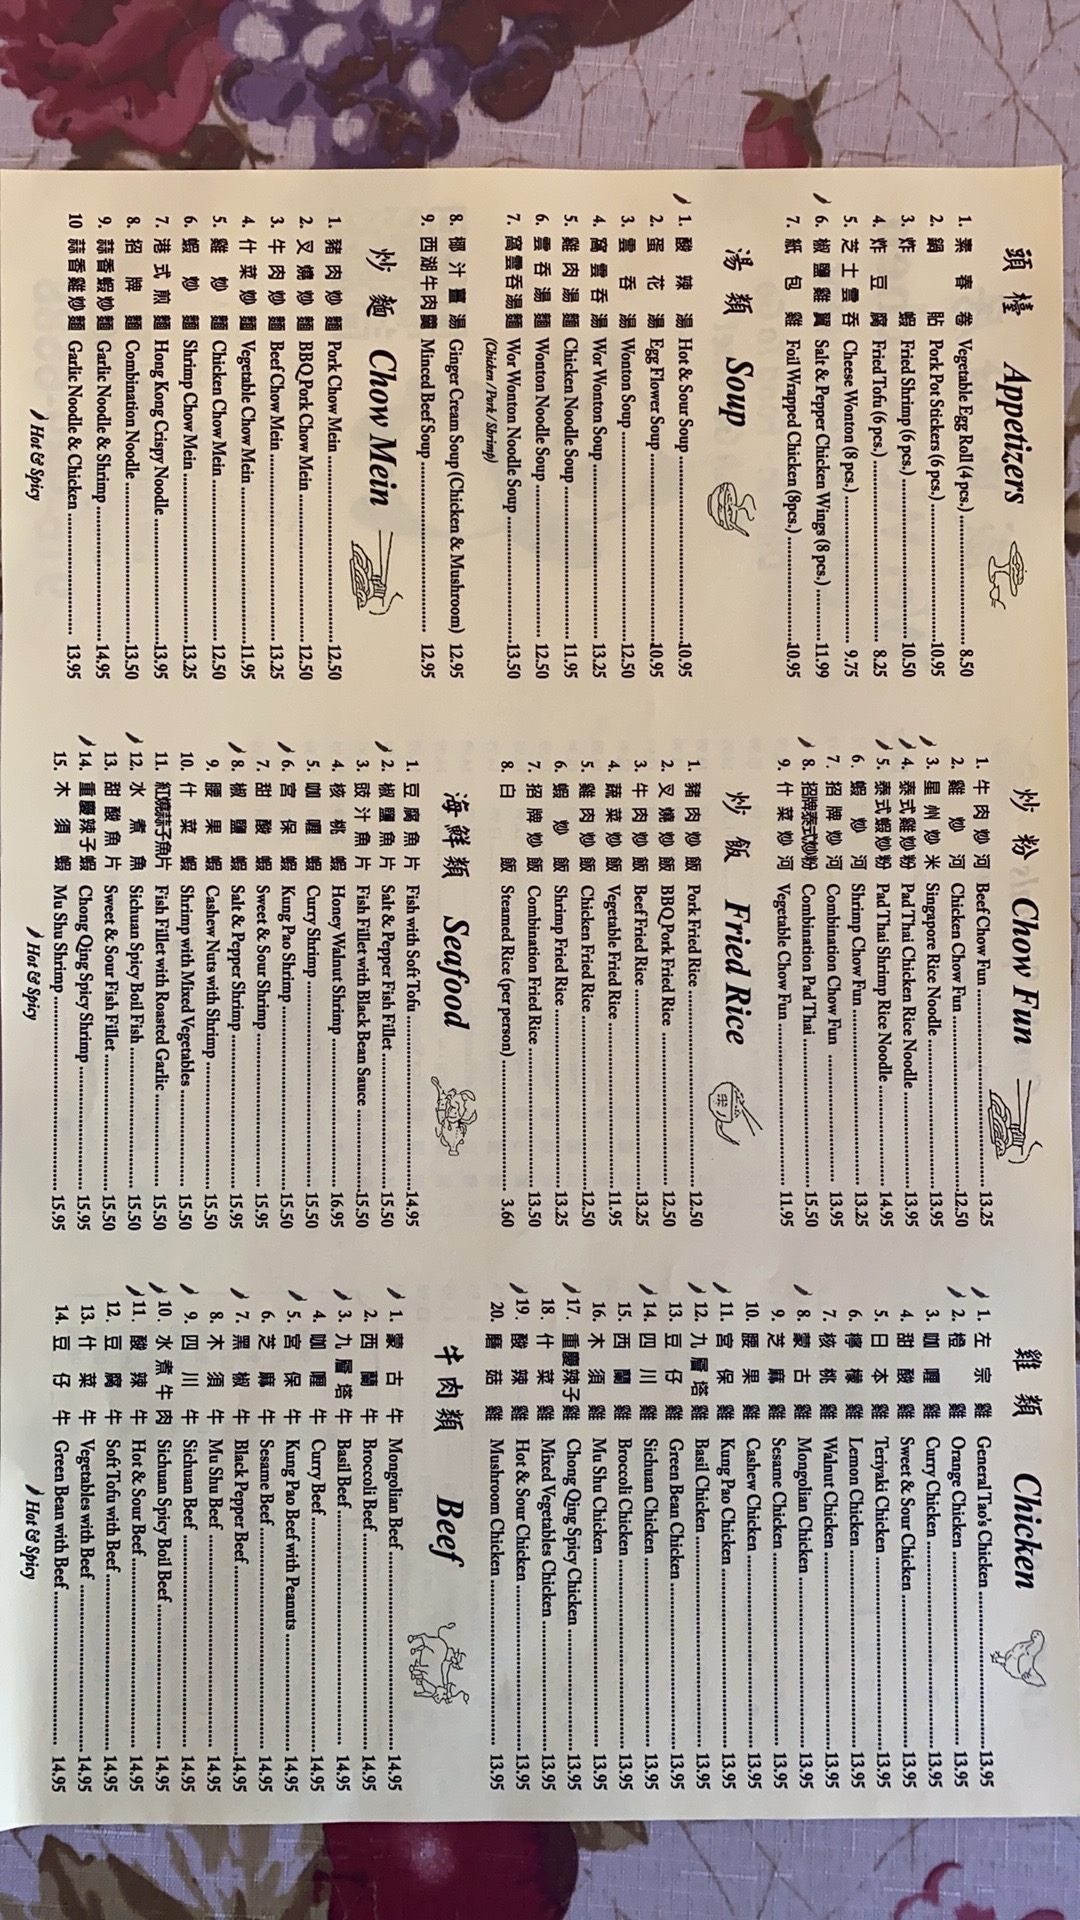 頭檯 Appetizers
1. 素春卷 Vegetable Egg Roll (4 pcs.) 8.50
2. 鍋貼 Pork Pot Stickers (6 pcs.) 10.95
3. 炸蝦 Fried Shrimp (6 pcs.) 10.50
4. 炸豆腐 Fried Tofu (6 pcs.) 8.25
5. 芝士雲吞 Cheese Wonton (8 pcs.) 9.75
6. 椒鹽雞翼 Salt & Pepper Chicken Wings (8 pcs.) 11.99
7. 紙包雞 Foil Wrapped Chicken (8pcs.) 10.95
湯類 Soup
1. 酸辣湯 Hot & Sour Soup 10.95
2. 蛋花湯 Egg Flower Soup 10.95
3. 雲吞湯 Wonton Soup 12.50
4. 窩雲吞湯 Wor Wonton Soup 13.25
5. 雞肉湯麵 Chicken Noodle Soup 11.95
6. 雲吞湯麵 Wonton Noodle Soup 12.50
7. 窩雲吞湯麵 Wor Wonton Noodle Soup 13.50
(Chicken / Pork / Shrimp)
8. 椰汁薑湯 Ginger Cream Soup (Chicken & Mushroom) 12.95
9. 西湖牛肉羹 Minced Beef Soup 12.95
炒麵 Chow Mein
1. 豬肉炒麵 Pork Chow Mein 12.50
2. 叉燒炒麵 BBQ Pork Chow Mein 12.50
3. 牛肉炒麵 Beef Chow Mein 13.25
4. 什菜炒麵 Vegetable Chow Mein 11.95
5. 雞炒麵 Chicken Chow Mein 12.50
6. 蝦炒麵 Shrimp Chow Mein 13.25
7. 港式煎麵 Hong Kong Crispy Noodle 13.95
8. 招牌麵 Combination Noodle 13.50
9. 蒜香蝦炒麵 Garlic Noodle & Shrimp 14.95
10 蒜香雞炒麵 Garlic Noodle & Chicken 13.95
Hot & Spicy
炒粉 Chow Fun
1. 牛肉炒河 Beef Chow Fun 13.25
2. 雞炒河 Chicken Chow Fun 12.50
3. 星州炒米 Singapore Rice Noodle 13.95
4. 泰式雞炒粉 Pad Thai Chicken Rice Noodle 13.95
5. 泰式蝦炒粉 Pad Thai Shrimp Rice Noodle 14.95
6. 蝦炒河 Shrimp Chow Fun 13.25
7. 招牌炒河 Combination Chow Fun 13.95
8. 招牌泰式炒粉 Combination Pad Thai 15.50
9. 什菜炒河 Vegetable Chow Fun 11.95
炒飯 Fried Rice
1. 豬肉炒飯 Pork Fried Rice 12.50
2. 叉燒炒飯 BBQ Pork Fried Rice 12.50
3. 牛肉炒飯 Beef Fried Rice 13.25
4. 蔬菜炒飯 Vegetable Fried Rice 11.95
5. 雞肉炒飯 Chicken Fried Rice 12.50
6. 蝦炒飯 Shrimp Fried Rice 13.25
7. 招牌炒飯 Combination Fried Rice 13.50
8. 白飯 Steamed Rice (per person) 3.60
海鮮類 Seafood
1. 豆腐魚片 Fish with Soft Tofu 14.95
2. 椒鹽魚片 Salt & Pepper Fish Fillet 15.50
3. 豉汁魚片 Fish Fillet with Black Bean Sauce 15.50
4. 核桃蝦 Honey Walnut Shrimp 16.95
5. 咖喱蝦 Curry Shrimp 15.50
6. 宮保蝦 Kung Pao Shrimp 15.50
7. 甜酸蝦 Sweet & Sour Shrimp 15.95
8. 椒鹽蝦 Salt & Pepper Shrimp 15.95
9. 腰果蝦 Cashew Nuts with Shrimp 15.50
10. 什菜蝦 Shrimp with Mixed Vegetables 15.50
11. 紅燒蒜子魚片 Fish Fillet with Roasted Garlic 15.50
12. 水煮魚 Sichuan Spicy Boil Fish 15.50
13. 甜酸魚片 Sweet & Sour Fish Fillet 15.50
14. 重慶辣子蝦 Chong Qing Spicy Shrimp 15.95
15. 木須蝦 Mu Shu Shrimp 15.95
Hot & Spicy
雞類 Chicken
1. 左宗雞 General Tao's Chicken 13.95
2. 橙雞 Orange Chicken 13.95
3. 咖喱雞 Curry Chicken 13.95
4. 甜酸雞 Sweet & Sour Chicken 13.95
5. 日本雞 Teriyaki Chicken 13.95
6. 檸檬雞 Lemon Chicken 13.95
7. 核桃雞 Walnut Chicken 13.95
8. 蒙古雞 Mongolian Chicken 13.95
9. 芝麻雞 Sesame Chicken 13.95
10. 腰果雞 Cashew Chicken 13.95
11. 宮保雞 Kung Pao Chicken 13.95
12. 九層塔雞 Basil Chicken 13.95
13. 豆仔雞 Green Bean Chicken 13.95
14. 四川雞 Sichuan Chicken 13.95
15. 西蘭雞 Broccoli Chicken 13.95
16. 木須雞 Mu Shu Chicken 13.95
17. 重慶辣子雞 Chong Qing Spicy Chicken 13.95
18. 什菜雞 Mixed Vegetables Chicken 13.95
19. 酸辣雞 Hot & Sour Chicken 13.95
20. 磨菇雞 Mushroom Chicken 13.95
牛肉類 Beef
1. 蒙古牛 Mongolian Beef 14.95
2. 西蘭牛 Broccoli Beef 14.95
3. 九層塔牛 Basil Beef 14.95
4. 咖喱牛 Curry Beef 14.95
5. 宮保牛 Kung Pao Beef with Peanuts 14.95
6. 芝麻牛 Sesame Beef 14.95
7. 黑椒牛 Black Pepper Beef 14.95
8. 木須牛 Mu Shu Beef 14.95
9. 四川牛 Sichuan Beef 14.95
10. 水煮牛肉 Sichuan Spicy Boil Beef 14.95
11. 酸辣牛 Hot & Sour Beef 14.95
12. 豆腐牛 Soft Tofu with Beef 14.95
13. 什菜牛 Vegetables with Beef 14.95
14. 豆仔牛 Green Bean with Beef 14.95
Hot & Spicy